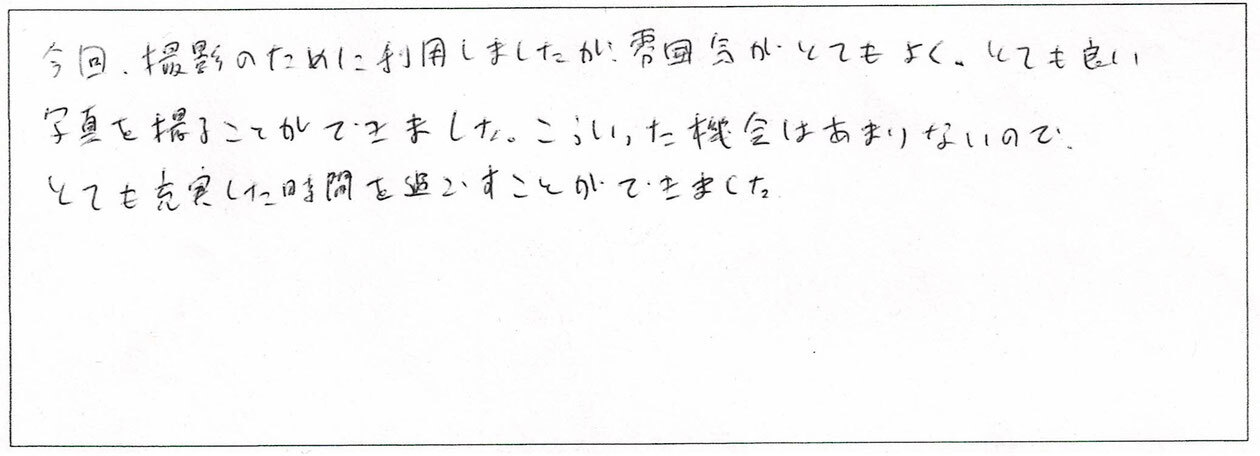 今回、撮影のために利用しましたが、雰囲気がとてもよく、とても良い
写真を撮ることができました。こういった機会はあまりないので、
とても充実した時間を過ごすことができました